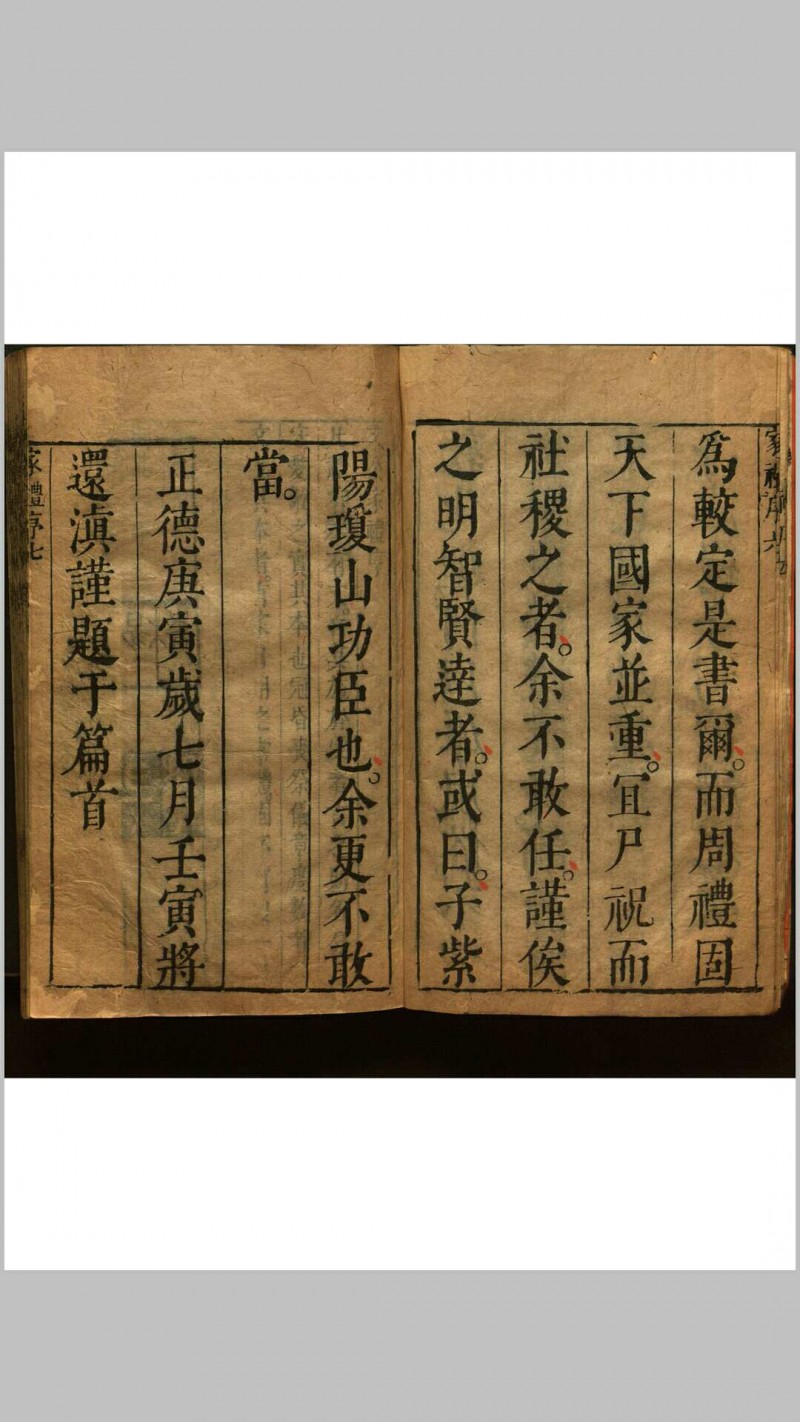 家禮序六
爲較定是書爾。而周禮固
天下國家並重。冝尸祝而
社稷之者。余不敢任。謹俟
之明智賢達者。或曰。子紫
陽瓊山功臣也。余更不敢
當。
正德庚寅歲七月壬寅將
還滇謹題于篇首
家禮序七